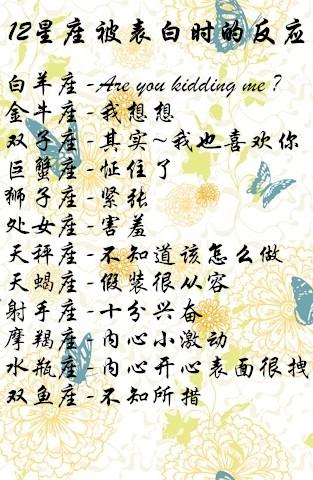 12星座被表白时的反应
白羊座-Are you kidding me？
金牛座-我想想
双子座-其实~我也喜欢你
巨蟹座-怔住了
狮子座-紧张
处女座-害羞
天秤座-不知道该怎么做
天蝎座-假装很从容
射手座-十分兴奋
摩羯座-内心小激动
水瓶座-内心开心表面很拽
双鱼座-不知所措